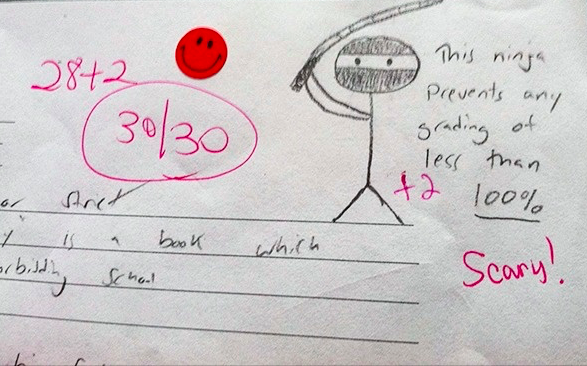 28+2
30/30
This ninja
prevents any
grading of
less than
100%
+2
Scary!
strict
is a book which
School